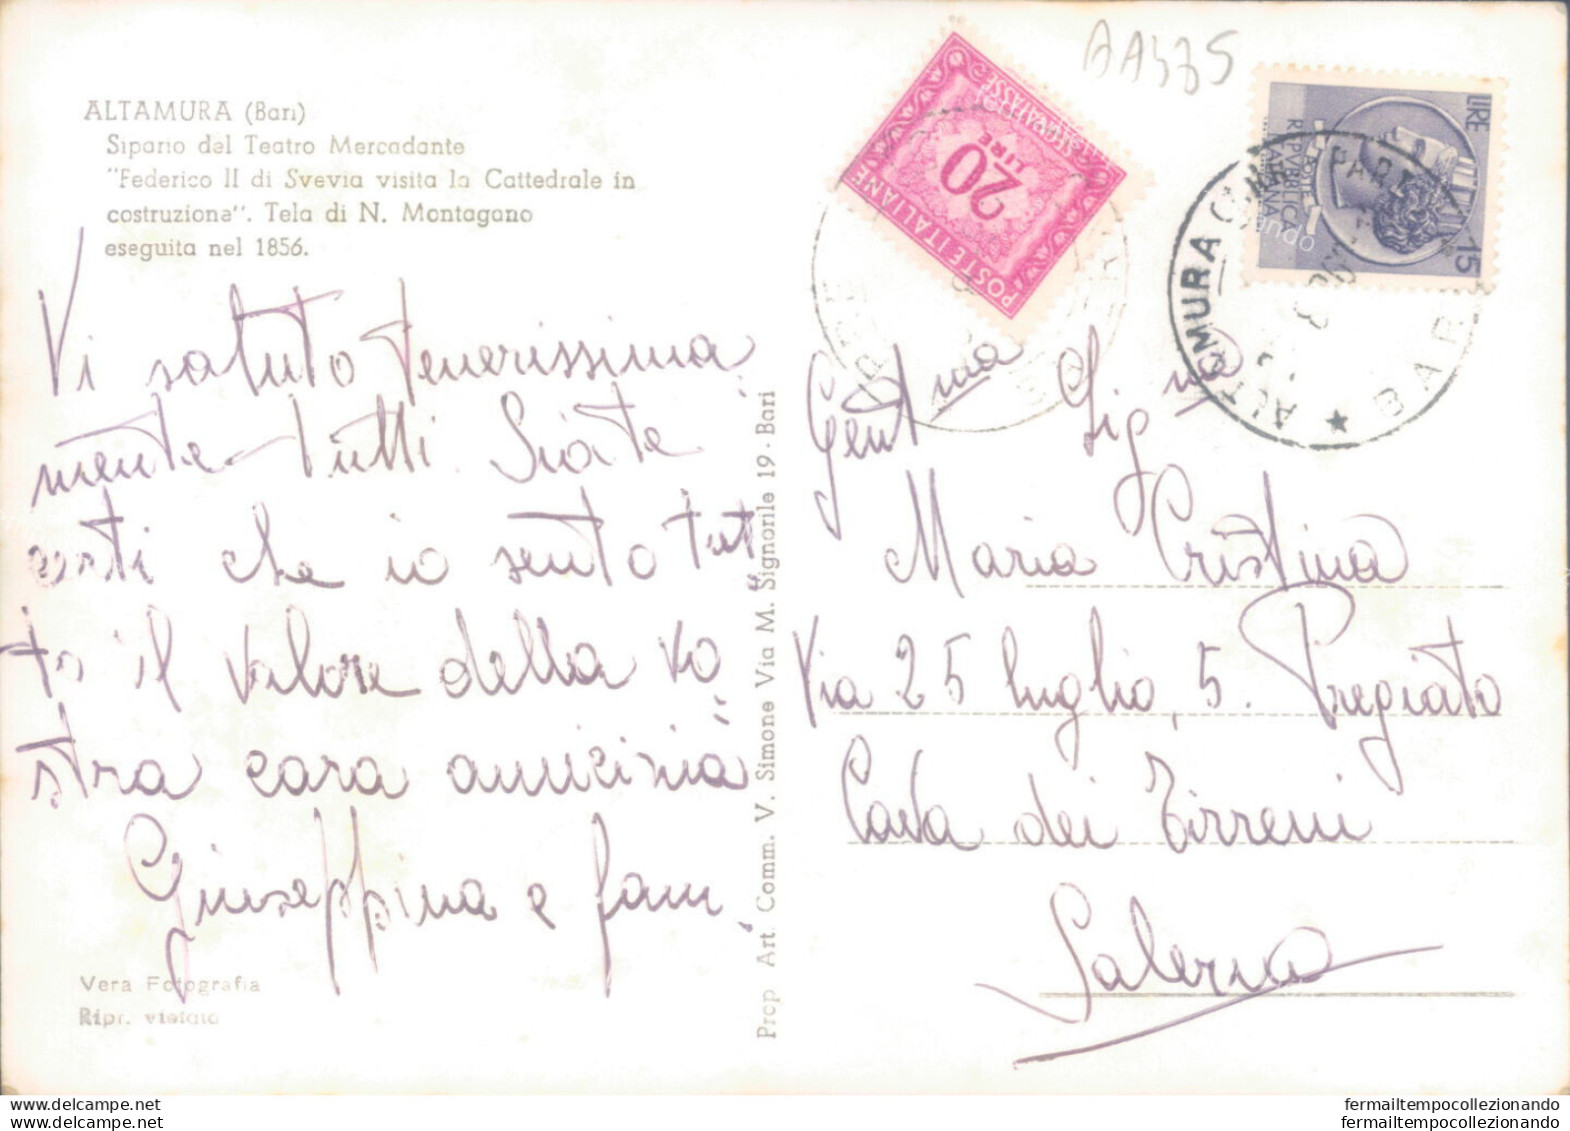 AA475
ALTAMURA (Bari)
Sipario del Teatro Mercadante
"Federico II di Svevia visita la Cattedrale in
costruzione". Tela di N. Montagano
eseguita nel 1856.
Vi saluto tenerissima
mente tutti. Siate
certi che io sento tut
to il valore della vo
stra cara amicizia
Giuseppina e fam.
Vera Fotografia
Ripr. vietata
Prop. Art. Comm. V. Simone Via M. Signorile 19 - Bari
POSTE ITALIANE
SEGNATASSE
20
LIRE
LIRE
15
REPVBBLICA
ITALIANA
ALTAMURA
BARI
Gent.ma Sig.ra
Maria Cristina
Via 25 luglio, 5. Pregiato
Cava dei Tirreni
Salerno
www.delcampe.net
www.delcampe.net
fermailtempocollezionando
fermailtempocollezionando